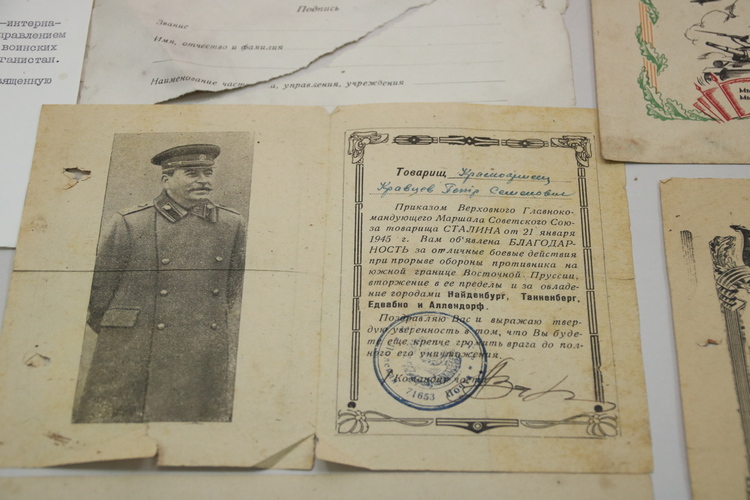 -интерна-
правлением
воинских
ганистан.
вященную
Подпись
Звание
Имя, отчество и фамилия
Наименование част а, управления, учреждения
Товарищ Красноармеец
Кравцов Петр Семенович
Приказом Верховного Главноко-
мандующего Маршала Советского Сою-
за товарища СТАЛИНА от 21 января
1945 г. Вам об'явлена БЛАГОДАР-
НОСТЬ за отличные боевые действия
при прорыве обороны противника на
южной границе Восточной Пруссии,
вторжение в ее пределы и за овладе-
ние городами Найденбург, Танненберг,
Едвабно и Аллендорф.
Поздравляю Вас и выражаю твер-
дую уверенность в том, что Вы буде-
те еще крепче громить врага до пол-
ного его уничтожения.
Командир части
71653